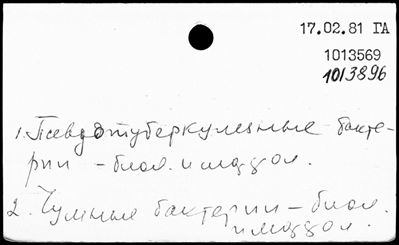 17.02.81 ГА
1013569
1013896
1. Псевдотуберкулезные бакте-
рии - биол. и мол. 
2. Чумные бактерии - биол.